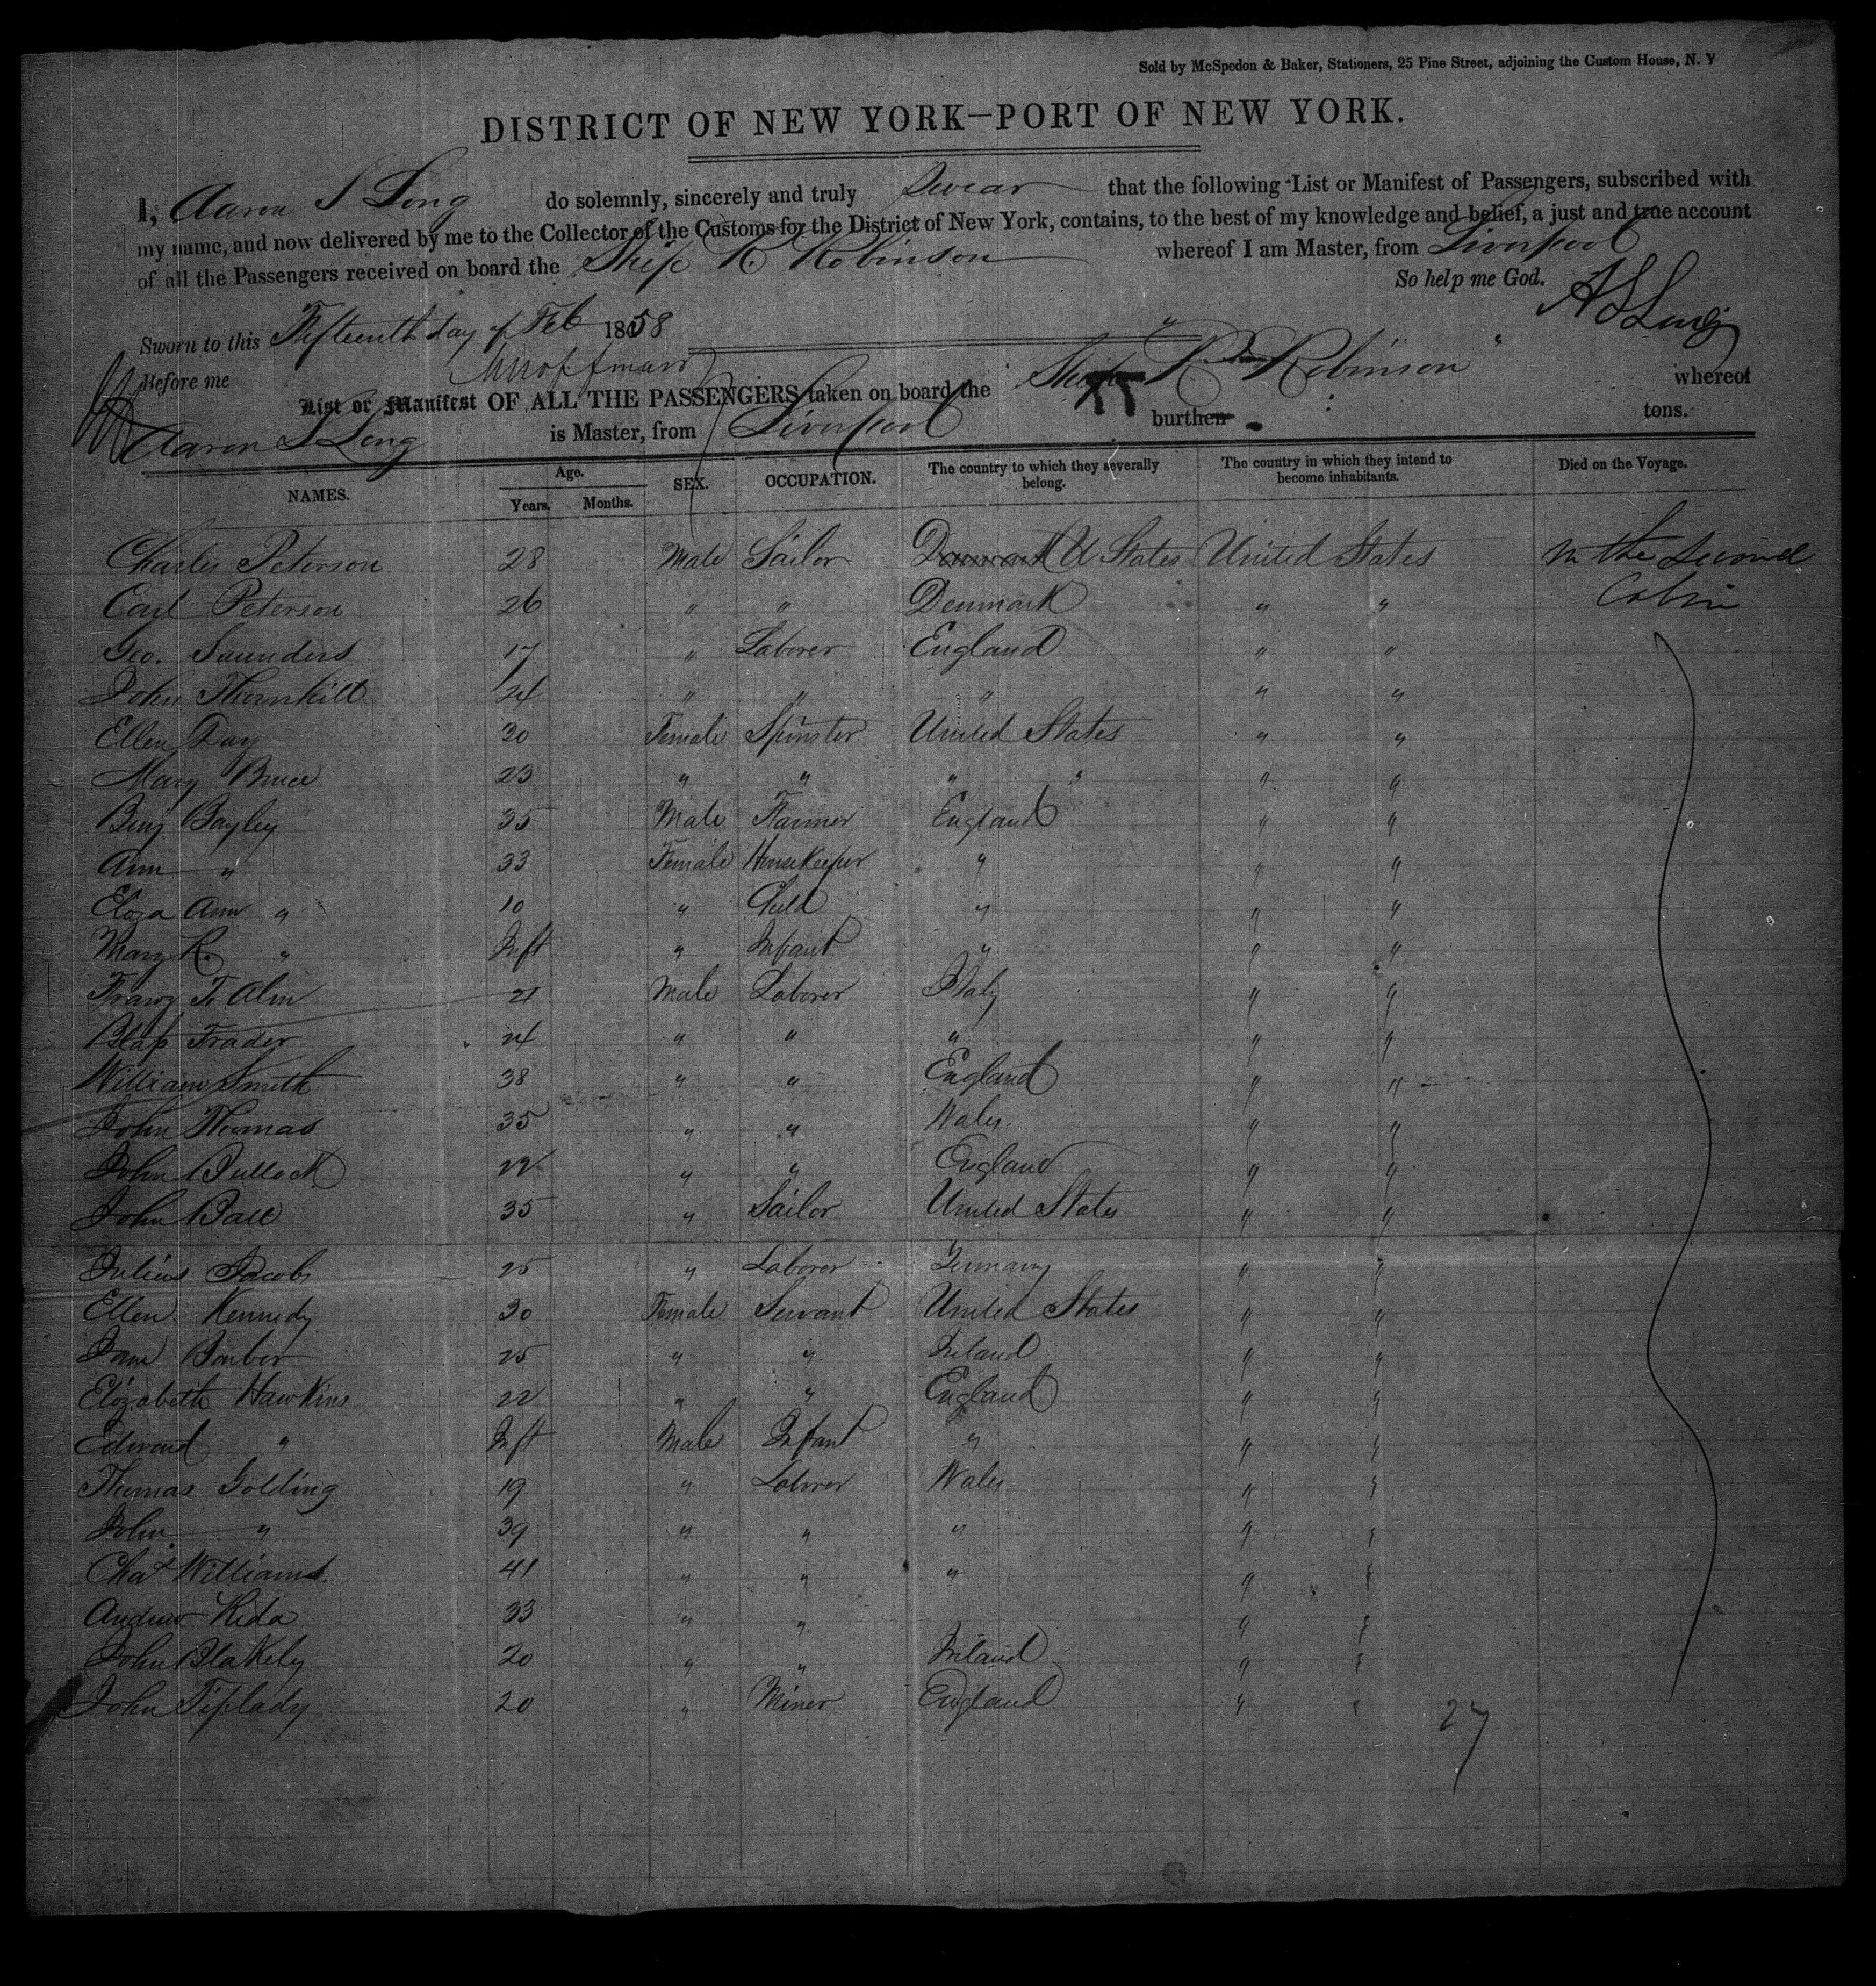 Sold by McSpedon & Baker, Stationers, 25 Pine Street, adjoining the Custom House, N. Y
DISTRICT OF NEW YORK—PORT OF NEW YORK.
I, Aaron S Long do solemnly, sincerely and truly Swear that the following List or Manifest of Passengers, subscribed with
my name, and now delivered by me to the Collector of the Customs for the District of New York, contains, to the best of my knowledge and belief, a just and true account
of all the Passengers received on board the Ship R Robinson whereof I am Master, from Liverpool
So help me God.
Sworn to this Fifteenth day of Feb 1858 A S Long
Before me
List or Manifest OF ALL THE PASSENGERS taken on board the Ship R Robinson whereof
Aaron S Long is Master, from Liverpool burthen tons.
NAMES. Age. Years. Months. SEX. OCCUPATION. The country to which they severally belong. The country in which they intend to become inhabitants. Died on the Voyage.
Charles Peterson 28 Male Sailor Denmark U States United States In the Second
Carl Peterson 26 " " Denmark " " Cabin
Geo. Saunders 17 " Laborer England " "
John Thornhill 24 " " " " "
Ellen Day 30 Female Spinster United States " "
Mary Bruce 23 " " " " " "
Benj Bayley 35 Male Farmer England " "
Ann " 33 Female Housekeeper " " "
Eliza Ann " 10 " Child " " "
Mary R. " Inft " Infant " " "
21 Male Laborer Italy " "
24 " " " " "
William Smith 38 " " England " "
John Thomas 35 " " Wales " "
John Bullock 22 " " England " "
John Ball 35 " Sailor United States " "
Julius Jacobs 25 " Laborer Germany " "
Ellen Kennedy 30 Female Servant United States " "
Jane Barber 25 " " Ireland " "
Elizabeth Hawkins 22 " " England " "
Edward " Inft Male Infant " " "
Thomas Golding 19 " Laborer Wales " "
John " 39 " " " " "
Chas Williams 41 " " " " "
Andrew Kida 33 " " " "
John Blakely 20 " " Ireland " "
John Tiplady 20 " Miner England " "
27